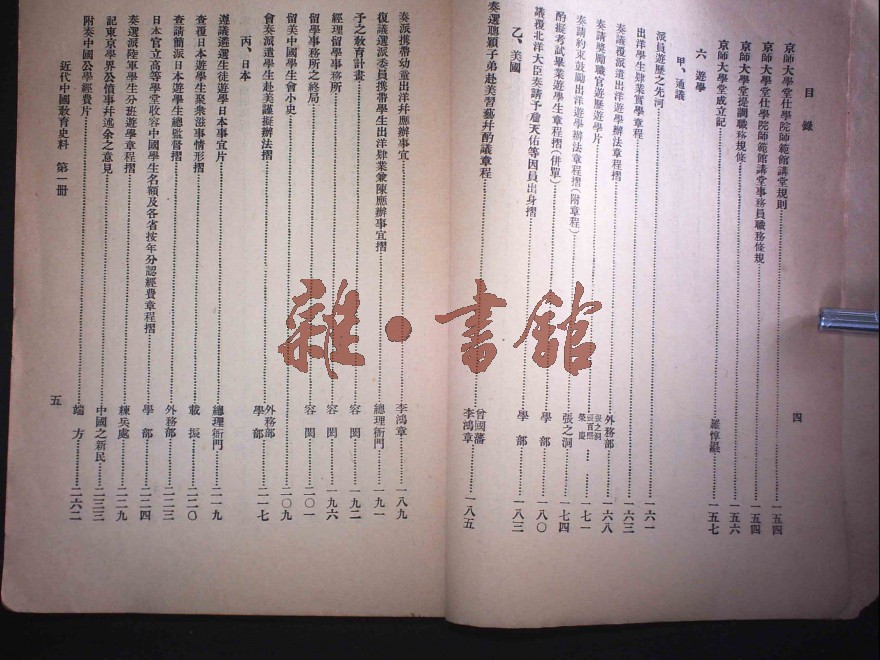 目錄
京師大學堂仕學院師範館講堂規則……一五四
京師大學堂仕學院師範館講堂事務員職務條規……一五四
京師大學堂提調職務規條……一五六
京師大學堂成立記……羅惇曧……一五七
六 遊學
甲、通議
派員遊歷之先河……一六一
出洋學生肄業實學章程……一六三
奏議覆派遣出洋遊學辦法章程摺……外務部……一六八
奏請獎勵職官遊歷遊學片……張之洞 張百熙 榮慶……一七一
奏請約束鼓勵出洋遊學辦法章程摺(附章程)……張之洞……一七四
酌擬考試畢業遊學生章程摺(併單)……學部……一八〇
議覆北洋大臣奏請予詹天佑等因員出身摺……學部……一八三
乙、美國
奏選聰穎子弟赴美習藝幷酌議章程……曾國藩 李鴻章……一八五
四
奏派携帶幼童出洋幷應辦事宜……李鴻章……一八九
復議選派委員携帶學生出洋肄業兼陳應辦事宜摺……總理衙門……一九一
予之教育計畫……容閎……一九二
經理留學事務所……容閎……一九六
留學事務所之終局……容閎……二〇一
留美中國學生會小史……二〇九
會奏派遣學生赴美謹擬辦法摺……外務部 學部……二一七
丙、日本
遵議遴選生徒遊學日本事宜片……總理衙門……二一九
查覆日本遊學生聚衆滋事情形摺……載振……二二〇
查請簡派日本遊學生總監督摺……外務部……二二三
日本官立高等學堂收容中國學生名額及各省按年分認經費章程摺……學部……二二四
奏選派陸軍學生分班遊學章程摺……練兵處……二二九
記東京學界公憤事幷述余之意見……中國之新民……二三三
附奏中國公學經費片……端方……二六二
近代中國教育史料 第一册
五
雜·書館